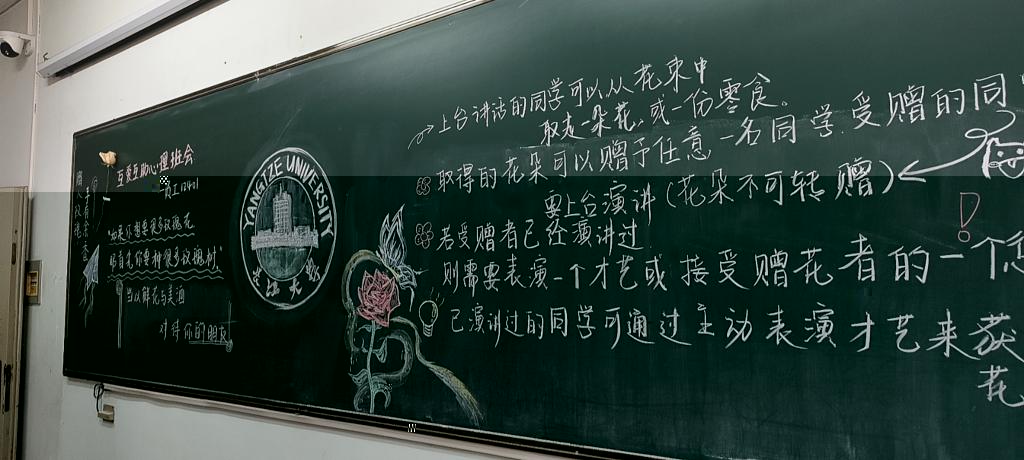 互爱互助心理班会
员工12401
"如果你想要很多玫瑰花
那首先你要种很多玫瑰树."
当以鲜花与美酒
对待你的朋友
YANGTZE UNIVERSITY
长江大学
上台讲话的同学可以从花束中
取走一朵花,或一份零食。
取得的花朵可以赠予任意一名同学.受赠的同
要上台演讲(花朵不可转赠)
若受赠者已经演讲过
则需要表演一个才艺或接受赠花者的一个
已演讲过的同学可通过主动表演才艺来获
花